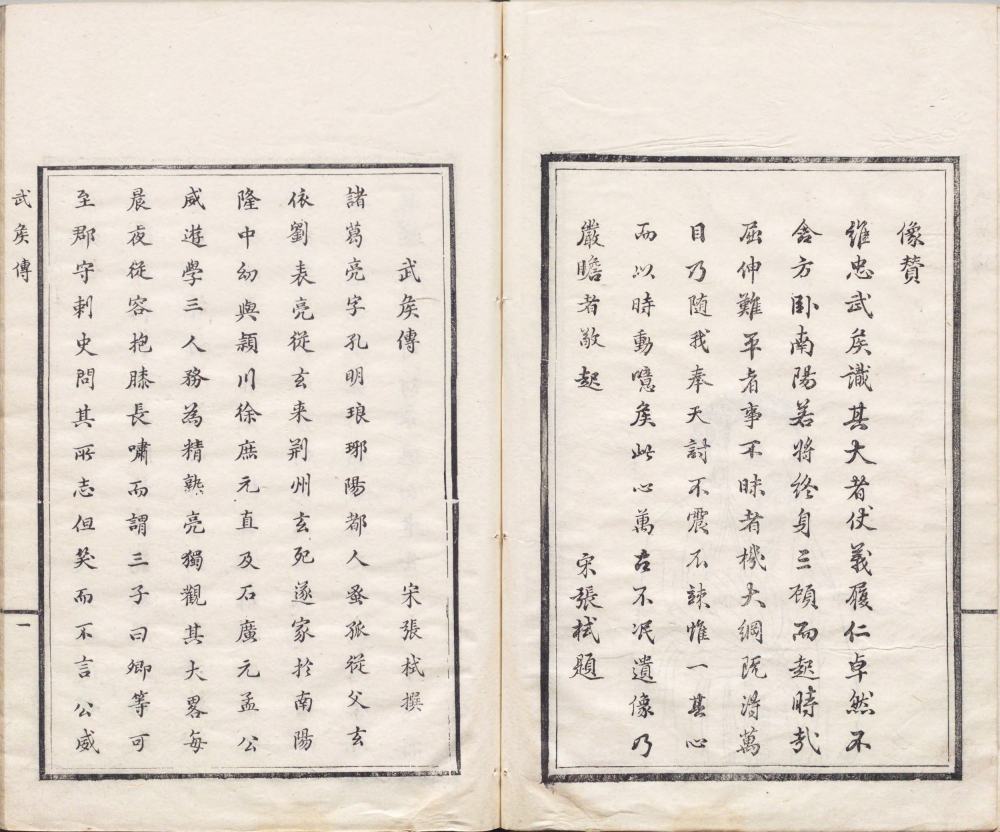 像贊
維忠武矦識其大者仗義履仁卓然不
舍方卧南陽若將終身三顧而起時哉
屈伸難平者事不昧者機大綱既得萬
目乃隨我奉天討不震不竦惟一其心
而以時動噫矦此心萬古不冺遺像乃
嚴瞻者敬起　宋張栻題
武矦傳　宋張栻撰
諸葛亮字孔明琅琊陽都人蚤孤從父玄
依劉表亮從玄来荆州玄死遂家於南陽
隆中幼與潁川徐庶元直及石廣元孟公
威遊學三人務為精熟亮獨觀其大畧每
晨夜從容抱膝長嘯而謂三子曰卿等可
至郡守刺史問其所志但笑而不言公威
武矦傳
一